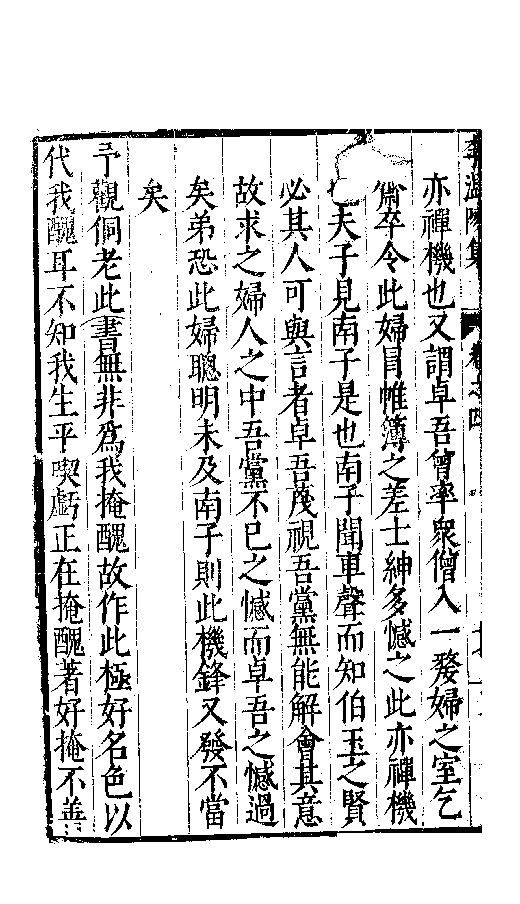 李溫陵集 卷之四
亦禪機也又謂卓吾曾率衆僧入一嫠婦之室乞
齋卒令此婦冐帷簿之羞士紳多憾之此亦禪機
也夫子見南子是也南子聞車聲而知伯玉之賢
必其人可與言者卓吾蔑視吾黨無能解會其意
故求之婦人之中吾黨不已之憾而卓吾之憾過
矣弟恐此婦聰明未及南子則此機鋒又發不當
矣
予觀侗老此書無非爲我掩醜故作此極好名色以
代我醜耳不知我生平喫虧正在掩醜著好掩不善